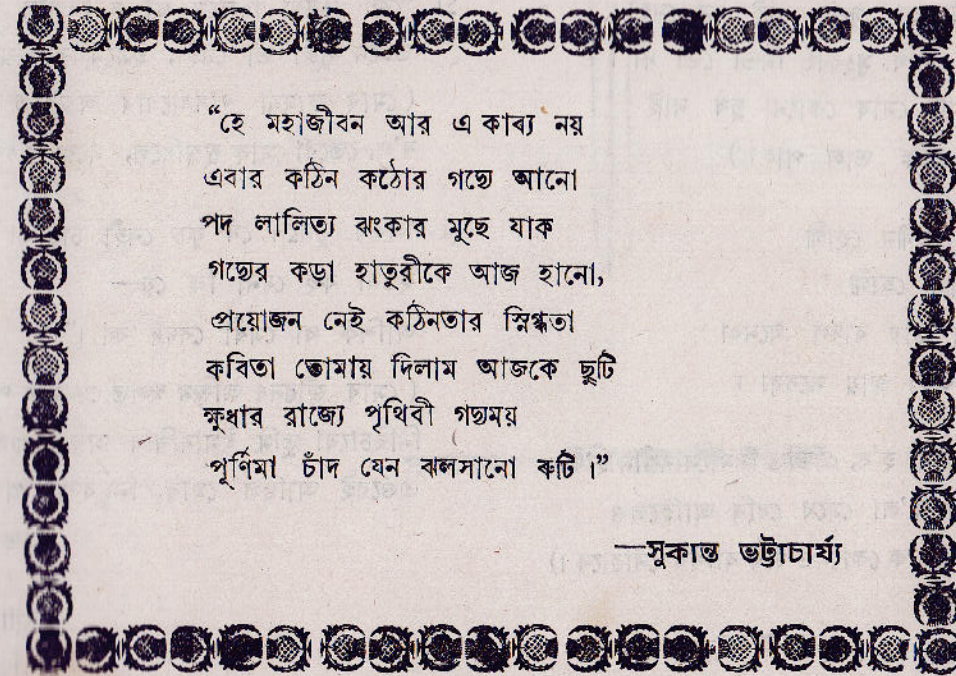 “হে মহাজীবন আর এ কাব্য নয়
এবার কঠিন কঠোর গদ্যে আনো
পদ লালিত্য ঝংকার মুছে যাক
গদ্যের কড়া হাতুরীকে আজ হানো,
প্রয়োজন নেই কঠিনতার স্নিগ্ধতা
কবিতা তোমায় দিলাম আজকে ছুটি
ক্ষুধার রাজ্যে পৃথিবী গদ্যময়
পূর্ণিমা চাঁদ যেন ঝলসানো রুটি।”
—সুকান্ত ভট্টাচার্য্য